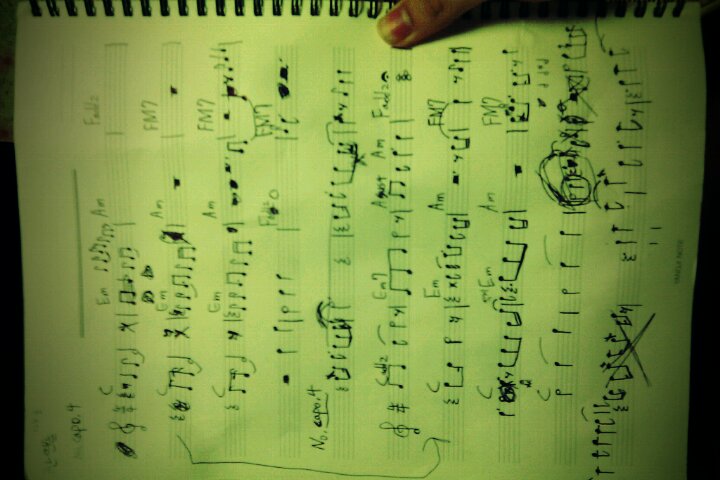 capo.4
C Em Am Fadd2
C Em Am FM7
C Em Am FM7
Fadd2 FM7
No. capo.4
Cadd2 Em7 Asus4 Am Fadd2
C Em Am FM7
C Em Am FM7
C